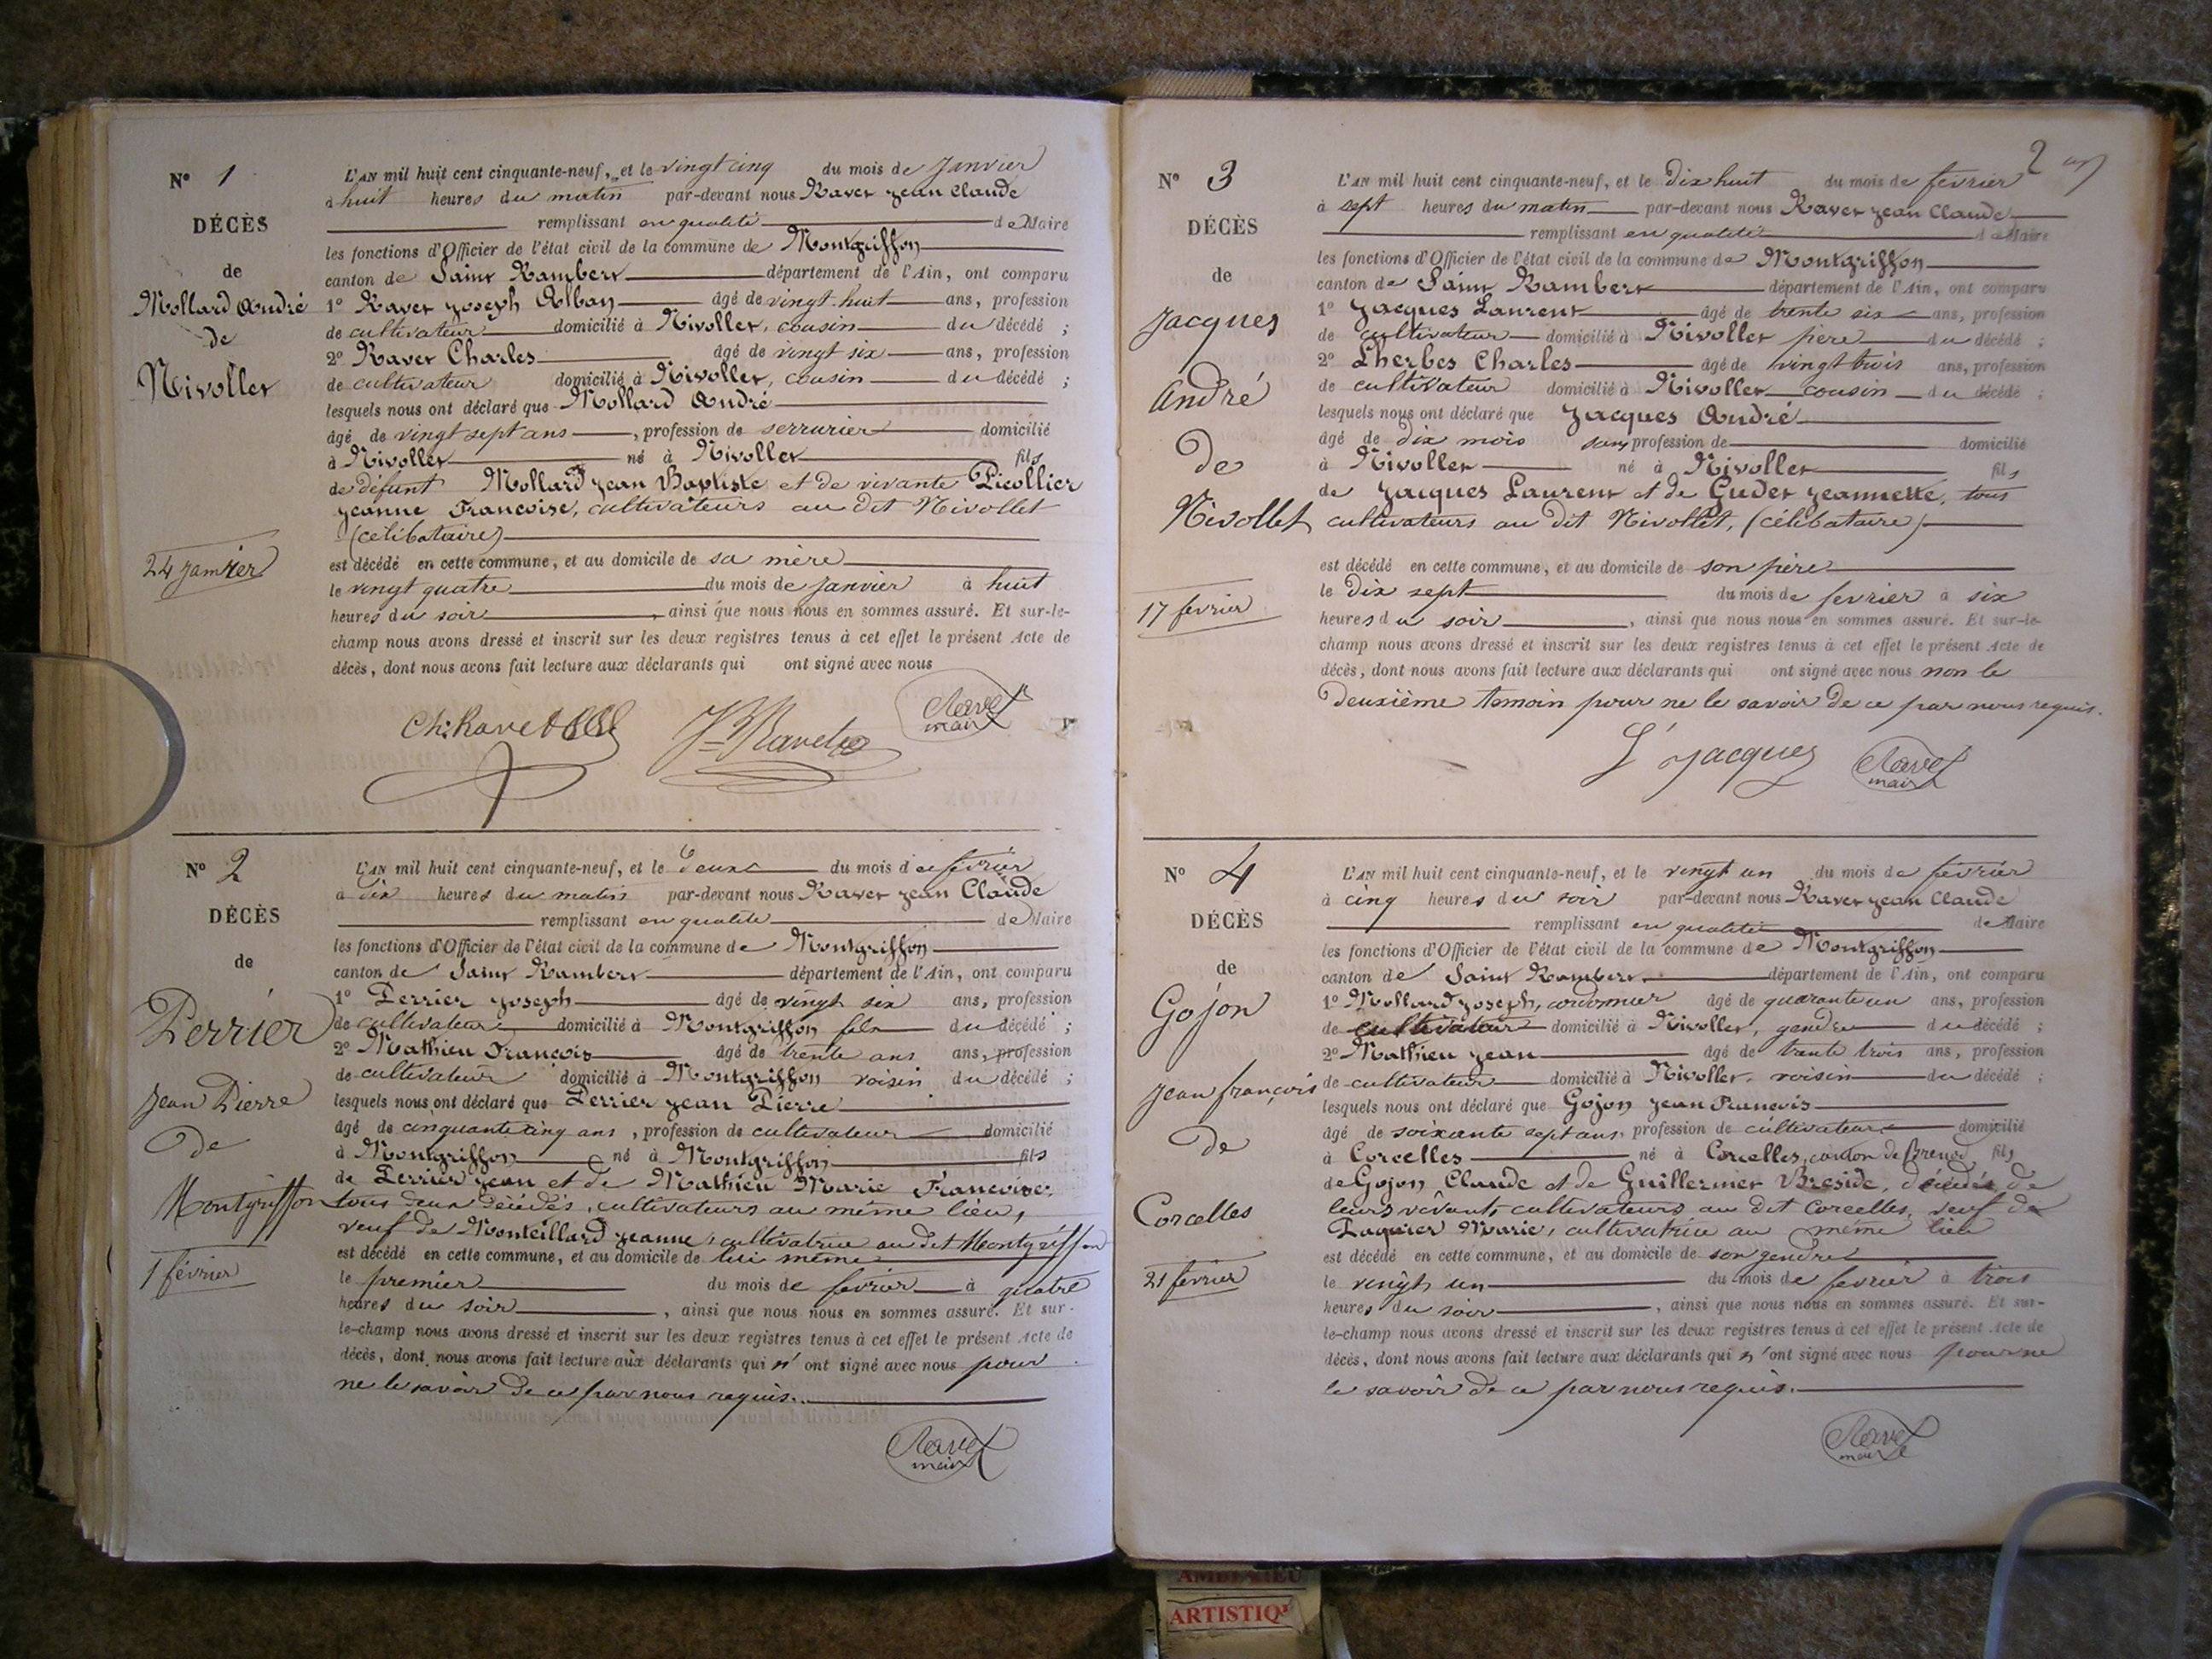 N° 1
DÉCÈS
de
Mollard André
de
Nivollet
24 janvier
L'AN mil huit cent cinquante-neuf, et le vingt cinq du mois de Janvier
à huit heures du matin par-devant nous Ravet Jean Claude
remplissant en qualité de Maire
les fonctions d'Officier de l'état civil de la commune de Montgriffon
canton de Saint Rambert département de l'Ain, ont comparu
1° Ravet Joseph Alban âgé de vingt-huit ans, profession
de cultivateur domicilié à Nivollet, cousin du décédé ;
2° Ravet Charles âgé de vingt six ans, profession
de cultivateur domicilié à Nivollet, cousin du décédé ;
lesquels nous ont déclaré que Mollard André
âgé de vingt sept ans, profession de serrurier domicilié
à Nivollet né à Nivollet fils
de défunt Mollard Jean Baptiste et de vivante Picollier
Jeanne Francoise, cultivateurs au dit Nivollet
(célibataire)
est décédé en cette commune, et au domicile de sa mère
le vingt quatre du mois de Janvier à huit
heures du soir, ainsi que nous nous en sommes assuré. Et sur-le-
champ nous avons dressé et inscrit sur les deux registres tenus à cet effet le présent Acte de
décès, dont nous avons fait lecture aux déclarants qui ont signé avec nous
Ch. Ravet Ravet
maire
N° 2
DÉCÈS
de
Perrier
Jean Pierre
de
Montgriffon
1 février
L'AN mil huit cent cinquante-neuf, et le deux du mois de février
à dix heures du matin par-devant nous Ravet Jean Claude
remplissant en qualité de Maire
les fonctions d'Officier de l'état civil de la commune de Montgriffon
canton de Saint Rambert département de l'Ain, ont comparu
1° Perrier Joseph âgé de vingt six ans, profession
de cultivateur domicilié à Montgriffon fils du décédé ;
2° Mathieu Francois âgé de trente ans ans, profession
de cultivateur domicilié à Montgriffon voisin du décédé ;
lesquels nous ont déclaré que Perrier Jean Pierre
âgé de cinquante cinq ans, profession de cultivateur domicilié
à Montgriffon né à Montgriffon fils
de Perrier Jean et de Mathieu Marie Francoise,
tous deux décédés, cultivateurs au même lieu,
veuf de Monteillard Jeanne, cultivatrice au dit Montgriffon
est décédé en cette commune, et au domicile de lui même
le premier du mois de fevrier à quatre
heures du soir, ainsi que nous nous en sommes assuré. Et sur-
le-champ nous avons dressé et inscrit sur les deux registres tenus à cet effet le présent Acte de
décès, dont nous avons fait lecture aux déclarants qui n'ont signé avec nous pour
ne le savoir de ce par nous requis.
Ravet
maire
2
N° 3
DÉCÈS
de
Jacques
André
de
Nivollet
17 fevrier
L'AN mil huit cent cinquante-neuf, et le dix huit du mois de février
à sept heures du matin par-devant nous Ravet Jean Claude
remplissant en qualité de Maire
les fonctions d'Officier de l'état civil de la commune de Montgriffon
canton de Saint Rambert département de l'Ain, ont comparu
1° Jacques Laurent âgé de trente six ans, profession
de cultivateur domicilié à Nivollet père du décédé ;
2° Lherbes Charles âgé de vingt trois ans, profession
de cultivateur domicilié à Nivollet cousin du décédé ;
lesquels nous ont déclaré que Jacques André
âgé de dix mois sans profession de domicilié
à Nivollet né à Nivollet fils
de Jacques Laurent et de Gudet Jeannette, tous
cultivateurs au dit Nivollet, (célibataire)
est décédé en cette commune, et au domicile de son père
le dix sept du mois de fevrier à six
heures du soir, ainsi que nous nous en sommes assuré. Et sur-le-
champ nous avons dressé et inscrit sur les deux registres tenus à cet effet le présent Acte de
décès, dont nous avons fait lecture aux déclarants qui ont signé avec nous non le
deuxième temoin pour ne le savoir de ce par nous requis.
L Jacques Ravet
maire
N° 4
DÉCÈS
de
Gojon
Jean françois
de
Corcelles
21 février
L'AN mil huit cent cinquante-neuf, et le vingt un du mois de février
à cinq heures du soir par-devant nous Ravet Jean Claude
remplissant en qualité de Maire
les fonctions d'Officier de l'état civil de la commune de Montgriffon
canton de Saint Rambert département de l'Ain, ont comparu
1° Mollard Joseph, cordonnier âgé de quarante un ans, profession
de cultivateur domicilié à Nivollet, gendre du décédé ;
2° Mathieu Jean âgé de trente trois ans, profession
de cultivateur domicilié à Nivollet, voisin du décédé ;
lesquels nous ont déclaré que Gojon Jean Francois
âgé de soixante sept ans, profession de cultivateur domicilié
à Corcelles né à Corcelles, canton de Brenod fils
de Gojon Claude et de Guillermier Breside, décédés de
leurs vivants cultivateurs au dit Corcelles, veuf de
Paquier Marie, cultivatrice au même lieu
est décédé en cette commune, et au domicile de son gendre
le vingt un du mois de fevrier à trois
heures du soir, ainsi que nous nous en sommes assuré. Et sur-
le-champ nous avons dressé et inscrit sur les deux registres tenus à cet effet le présent Acte de
décès, dont nous avons fait lecture aux déclarants qui n'ont signé avec nous pour ne
le savoir de ce par nous requis.
Ravet
maire
ARTISTIQ